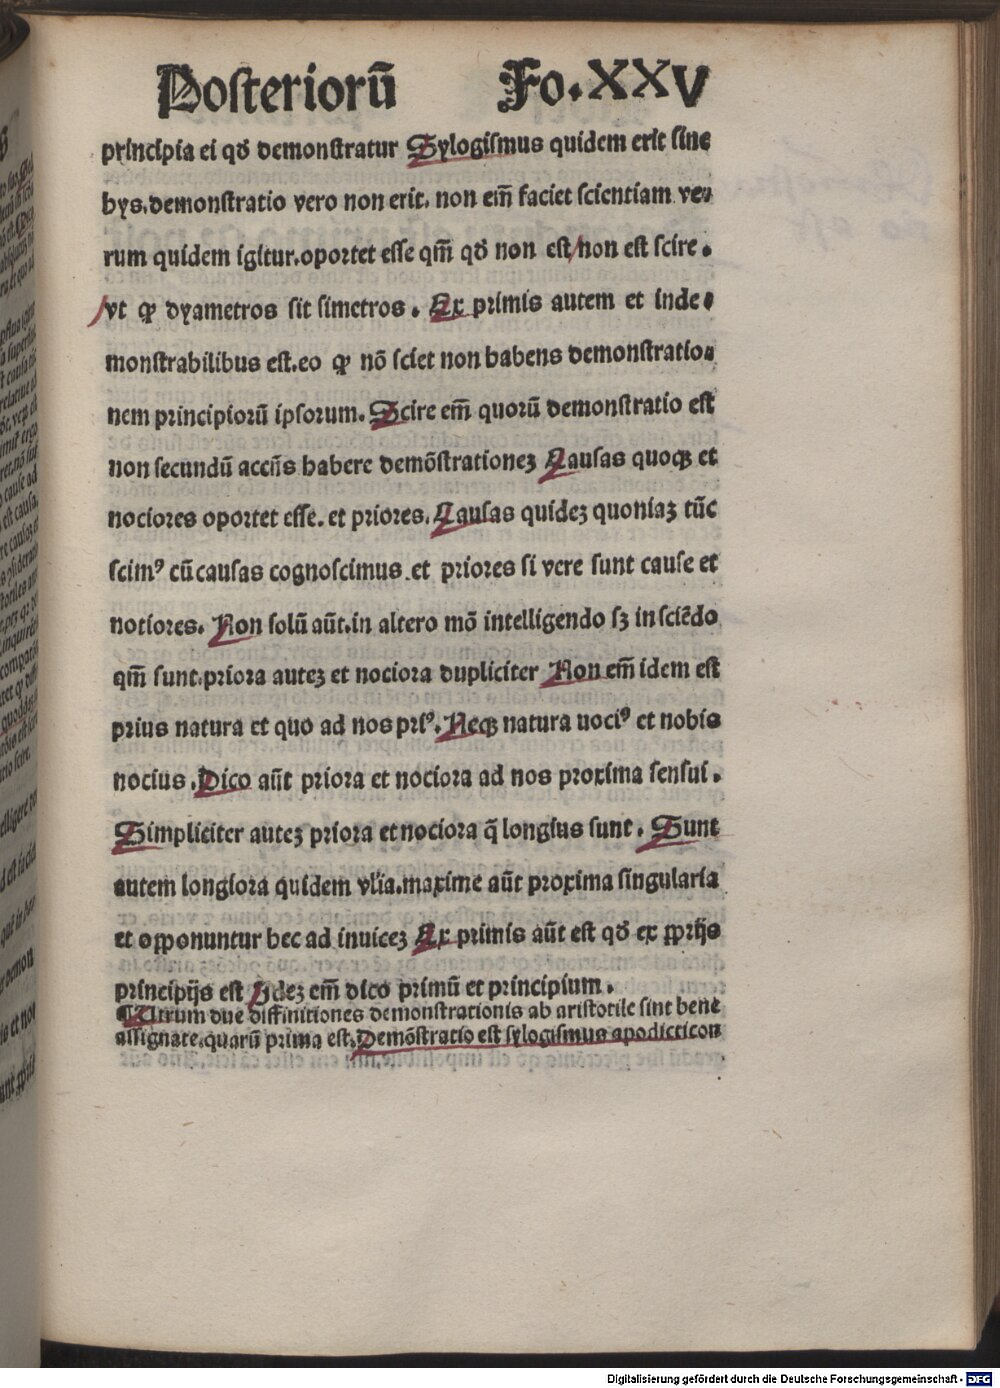 Posteriorū Fo.XXV
principia ei qď demonstratur Sylogismus quidem erit sine
hys.demonstratio vero non erit. non em̄ faciet scientiam ve⸗
rum quidem igitur.oportet esse qm̄ qď non est/non est scire.
/vt ꝙ dyametros sit simetros. Ex primis autem et inde⸗
monstrabilibus est.eo ꝙ nō sciet non habens demonstratio⸗
nem principiorū ipsorum. Scire em̄ quorū demonstratio est
non secundū accn̄s habere demōstrationeʒ Causas quoqꝫ et
nociores oportet esse. et priores. Causas quideʒ quoniaʒ tūc
scimꝰ cū causas cognoscimus.et priores si vere sunt cause et
notiores. Non solū aūt.in altero mō intelligendo sʒ in sciēdo
qm̄ sunt.priora auteʒ et nociora dupliciter Non em̄ idem est
prius natura et quo ad nos priꝰ. Neqꝫ natura nociꝰ et nobis
nocius. Dico aūt priora et nociora ad nos proxima sensui.
Simpliciter auteʒ priora et nociora q̄ longius sunt. Sunt
autem longiora quidem vl̄ia.maxime aūt proxima singularia
et oꝓponuntur hec ad inuiceʒ Ex primis aūt est qď ex ꝓprijs
principijs est Ideʒ em̄ dico primū et principium.
¶ Utrum due diffinitiones demonstrationis ab aristotile sint bene
assignate.quarū prima est. Demōstratio est sylogismus apodicticon
Digitalisierung gefördert durch die Deutsche Forschungsgemeinschaft - DFG